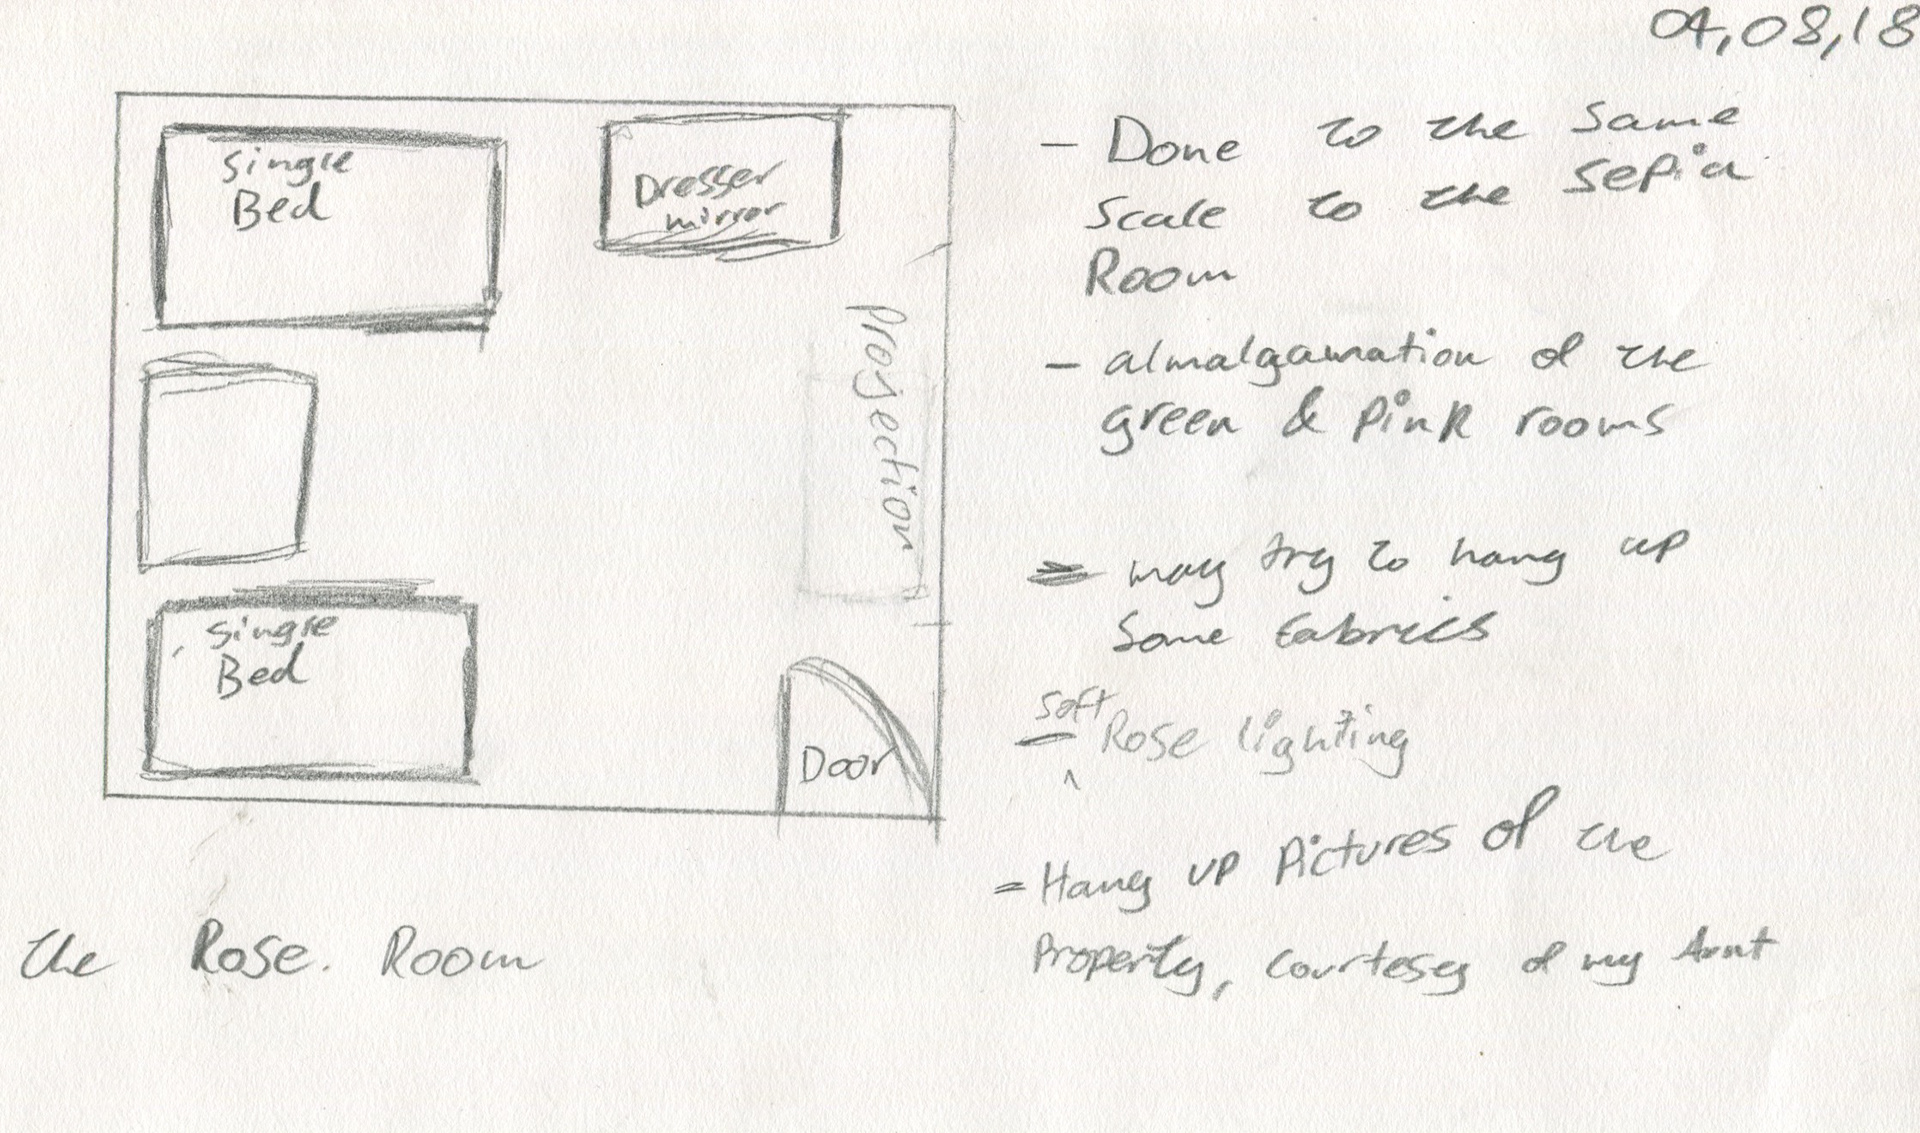 04,08,18
Single
Bed
Dresser
mirror
Projection
Single
Bed
Door
the Rose Room
- Done to the same
scale to the sepia
Room
- almalgamation of the
green & pink rooms
- may try to hang up
some fabrics
- soft Rose lighting
- Hang up pictures of the
property, courtesy of my Aunt